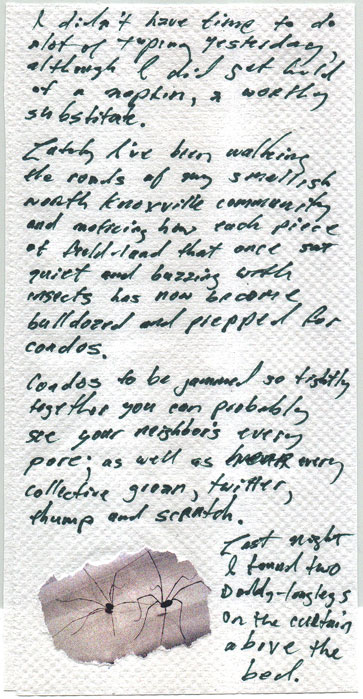 I didn't have time to do
alot of typing yesterday,
although I did get hold
of a napkin, a worthy
substitute.
Lately I've been walking
the roads of my smallish
north Knoxville community
and noticing how each piece
of field-land that once sat
quiet and buzzing with
insects has now become
bulldozed and prepped for
condos.
Condos to be jammed so tightly
together you can probably
see your neighbor's every
pore; as well as hear every
collective groan, twitter,
thump and scratch.
Last night
I found two
Daddy-longlegs
on the curtain
above the
bed.